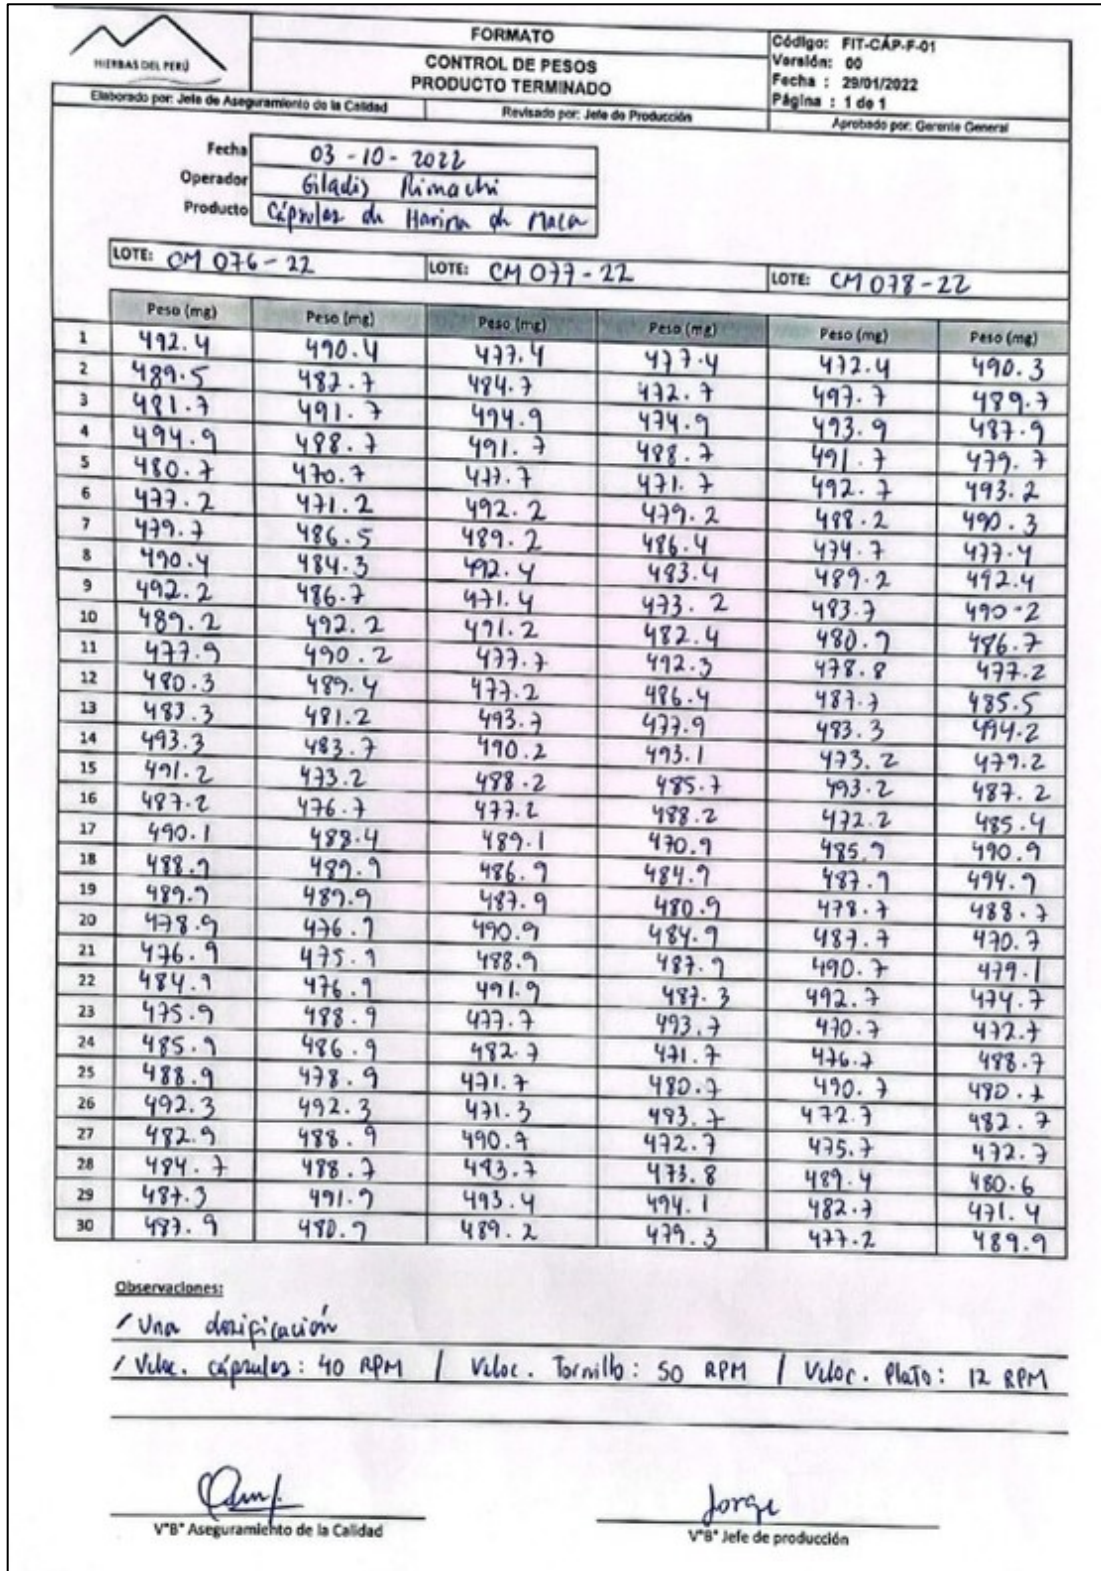 HIERBAS DEL PERÚ
FORMATO
CONTROL DE PESOS
PRODUCTO TERMINADO
Código: FIT-CÁP-F-01
Versión: 00
Fecha : 29/01/2022
Página : 1 de 1
Elaborado por: Jefe de Aseguramiento de la Calidad Revisado por: Jefe de Producción Aprobado por: Gerente General
Fecha 03 - 10 - 2022
Operador Giladis Rimachi
Producto Cápsulas de Harina de Maca
LOTE: CM 076 - 22 LOTE: CM 077 - 22 LOTE: CM 078 - 22
Peso (mg) Peso (mg) Peso (mg) Peso (mg) Peso (mg) Peso (mg)
1 492.4 490.4 477.4 477.4 472.4 490.3
2 489.5 482.7 484.7 472.7 497.7 489.7
3 481.7 491.7 494.9 474.9 493.9 487.9
4 494.9 488.7 491.7 488.7 491.7 479.7
5 480.7 470.7 477.7 471.7 492.7 493.2
6 477.2 471.2 492.2 479.2 488.2 490.3
7 479.7 486.5 489.2 486.4 474.7 477.4
8 490.4 484.3 492.4 483.4 489.2 492.4
9 492.2 486.7 471.4 473.2 483.7 490.2
10 489.2 492.2 491.2 482.4 480.9 486.7
11 477.9 490.2 477.7 492.3 478.8 477.2
12 480.3 489.4 477.2 486.4 487.7 485.5
13 483.3 481.2 493.7 477.9 483.3 494.2
14 493.3 483.7 490.2 493.1 473.2 479.2
15 491.2 473.2 488.2 485.7 493.2 487.2
16 487.2 476.7 477.2 488.2 472.2 485.4
17 490.1 488.4 489.1 470.9 485.9 490.9
18 488.9 489.9 486.9 484.9 487.9 494.9
19 489.9 489.9 487.9 480.9 478.7 488.7
20 478.9 476.9 490.9 484.9 487.7 470.7
21 476.9 475.9 488.9 487.9 490.7 479.1
22 484.9 476.9 491.9 487.3 492.7 474.7
23 475.9 488.9 477.7 493.7 470.7 472.7
24 485.9 486.9 482.7 471.7 476.7 488.7
25 488.9 478.9 471.7 480.7 490.7 480.7
26 492.3 492.3 471.3 493.7 472.7 482.7
27 482.9 488.9 490.7 472.7 475.7 472.7
28 484.7 488.7 493.7 473.8 489.4 480.6
29 487.3 491.9 493.4 494.1 482.7 471.4
30 487.9 480.9 489.2 479.3 477.2 489.9
Observaciones:
/ Una dosificación
/ Veloc. cápsulas: 40 RPM / Veloc. Tornillo: 50 RPM / Veloc. Plato: 12 RPM
Jorge
V°B° Aseguramiento de la Calidad V°B° Jefe de producción